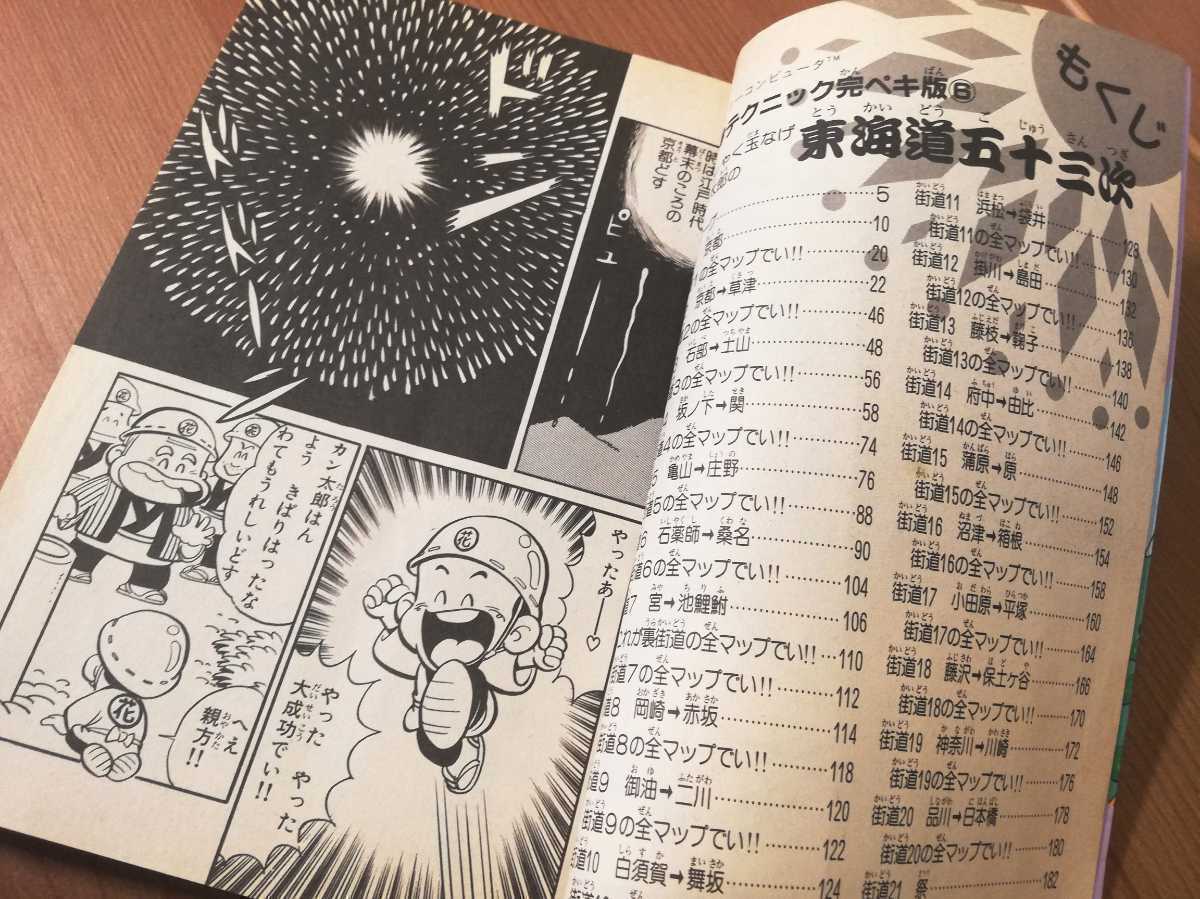 時は江戸時代
幕末のころの
京都どす
ピュ
ド
ドドド
カン太郎はん
よう きばりはったな
わてもうれしいどす
へえ
親方!!
やったあー♡
やった やった
大成功でい!!
花
花
花
花
もくじ
ーコンピュータ™
テクニック完ペキ版⑥
東海道五十三次
やく玉なげ
太郎の
5
京都
10
の全マップでい!! 20
京都→草津 22
2の全マップでい!! 46
石部→土山 48
道3の全マップでい!! 56
坂ノ下→関 58
道4の全マップでい!! 74
5 亀山→庄野 76
道5の全マップでい!! 88
6 石薬師→桑名 90
街道6の全マップでい!! 104
街道7 宮→池鯉鮒 106
これが裏街道の全マップでい!! 110
街道7の全マップでい!! 112
街道8 岡崎→赤坂 114
街道8の全マップでい!! 118
街道9 御油→二川 120
街道9の全マップでい!! 122
街道10 白須賀→舞坂 124
街道11 浜松→袋井 128
街道11の全マップでい!! 130
街道12 掛川→島田 132
街道12の全マップでい!! 136
街道13 藤枝→鞠子 138
街道13の全マップでい!! 140
街道14 府中→由比 142
街道14の全マップでい!! 146
街道15 蒲原→原 148
街道15の全マップでい!! 152
街道16 沼津→箱根 154
街道16の全マップでい!! 158
街道17 小田原→平塚 160
街道17の全マップでい!! 164
街道18 藤沢→保土ヶ谷 166
街道18の全マップでい!! 170
街道19 神奈川→川崎 172
街道19の全マップでい!! 176
街道20 品川→日本橋 178
街道20の全マップでい!! 180
街道21 祭 182